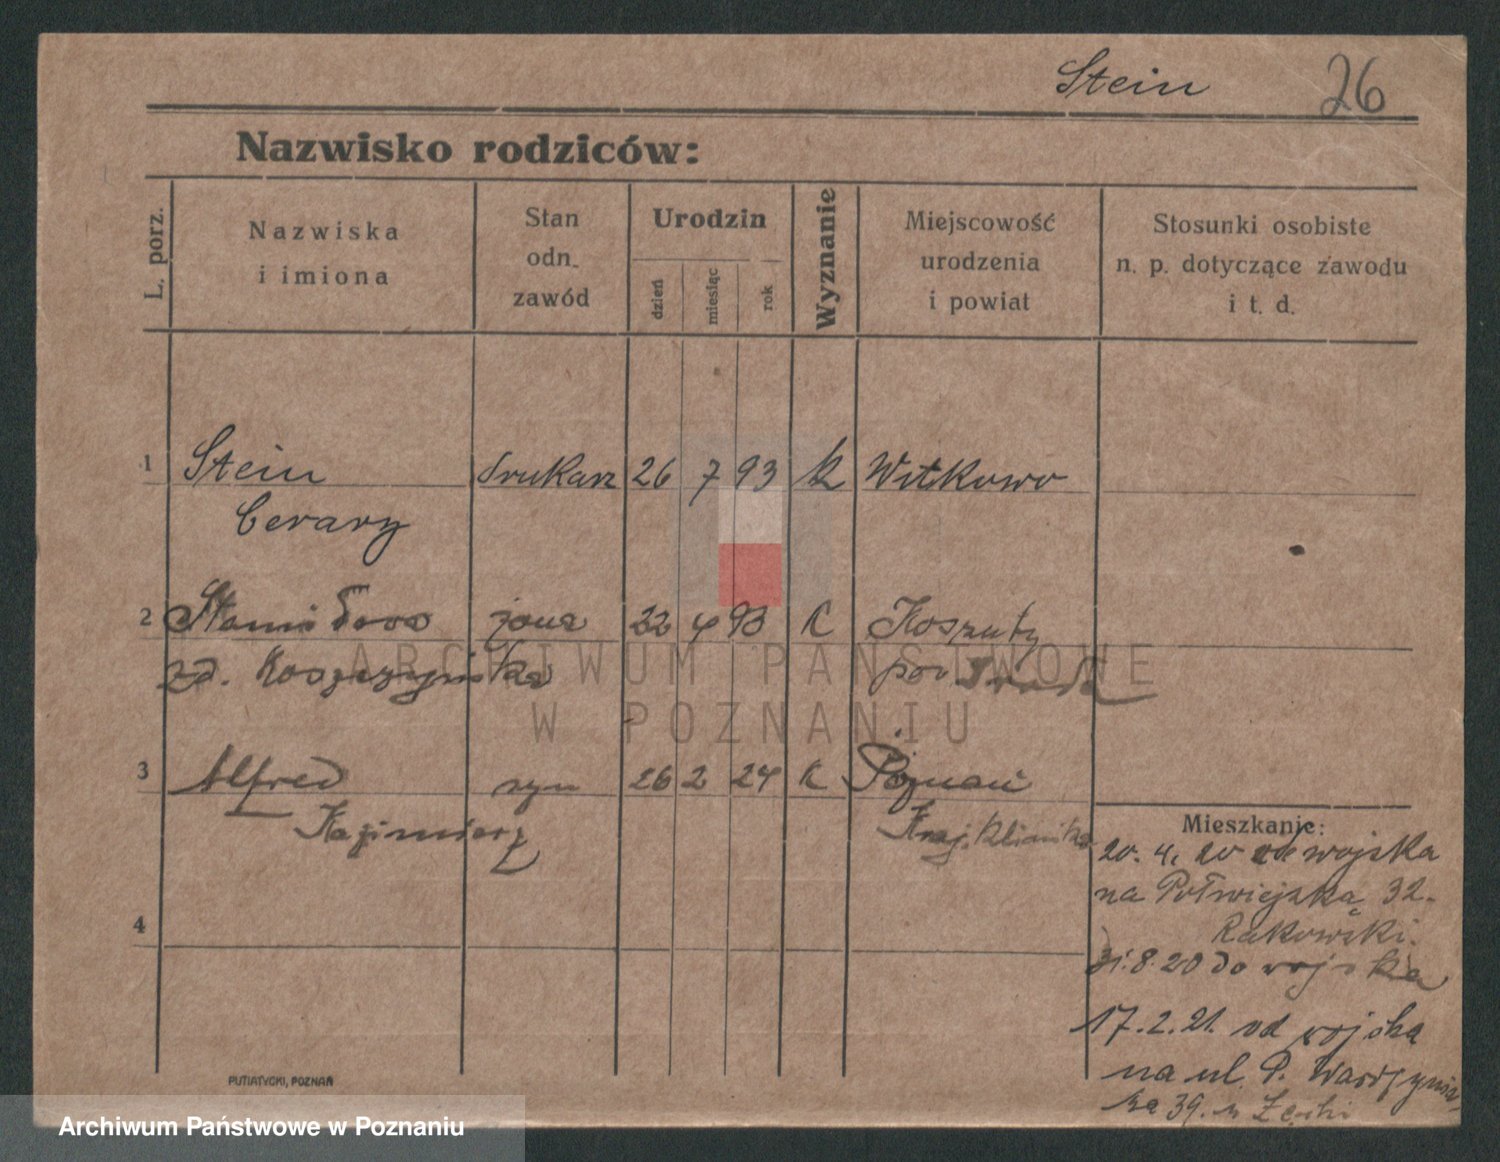 Stein 26
Nazwisko rodziców:
L. porz.
Nazwiska
i imiona
Stan
odn.
zawód
Urodzin
dzień
miesiąc
rok
Wyznanie
Miejscowość
urodzenia
i powiat
Stosunki osobiste
n. p. dotyczące zawodu
i t. d.
1 Stein drukarz 26 7 93 k Witkowo
Cezary
2 żona 22 4 93 k Koszuty
zd. pow
ARCHIWUM PAŃSTWOWE
W POZNANIU
3 Alfred syn 26 2 24 k Poznań
Kazimierz Kraj. Klinika
Mieszkanie:
20. 4. 20 od wojska
na Półwiejską 32.
Rakowski.
31. 8. 20 do wojska
17. 2. 21. od wojska
na ul. P. Wawrzynia-
ka 39.
4
PUTIATYCKI, POZNAŃ
Archiwum Państwowe w Poznaniu